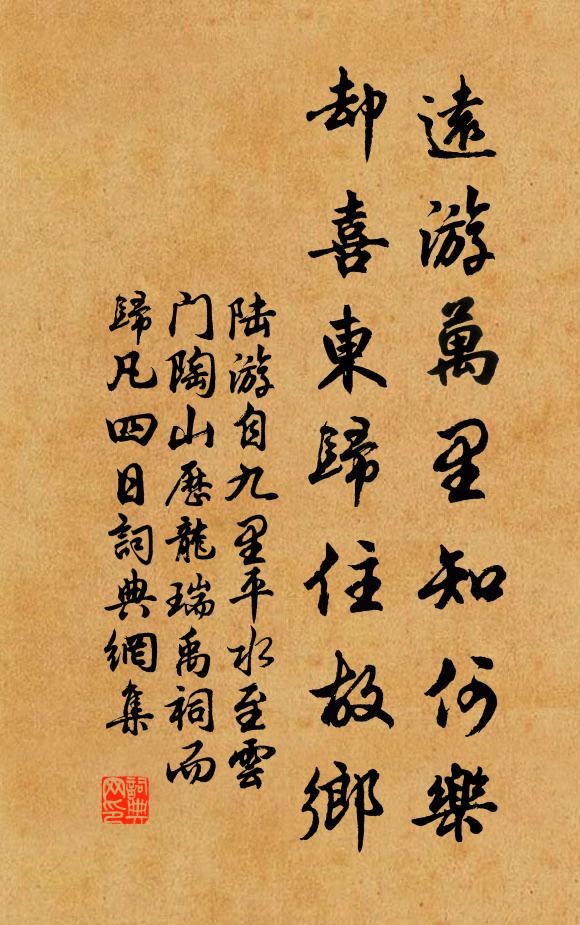 遠游萬里知何樂
却喜東歸住故鄉
陆游自九里平水至雲
门陶山歷龍瑞禹祠而
歸凡四日詞典網集
詞典网印